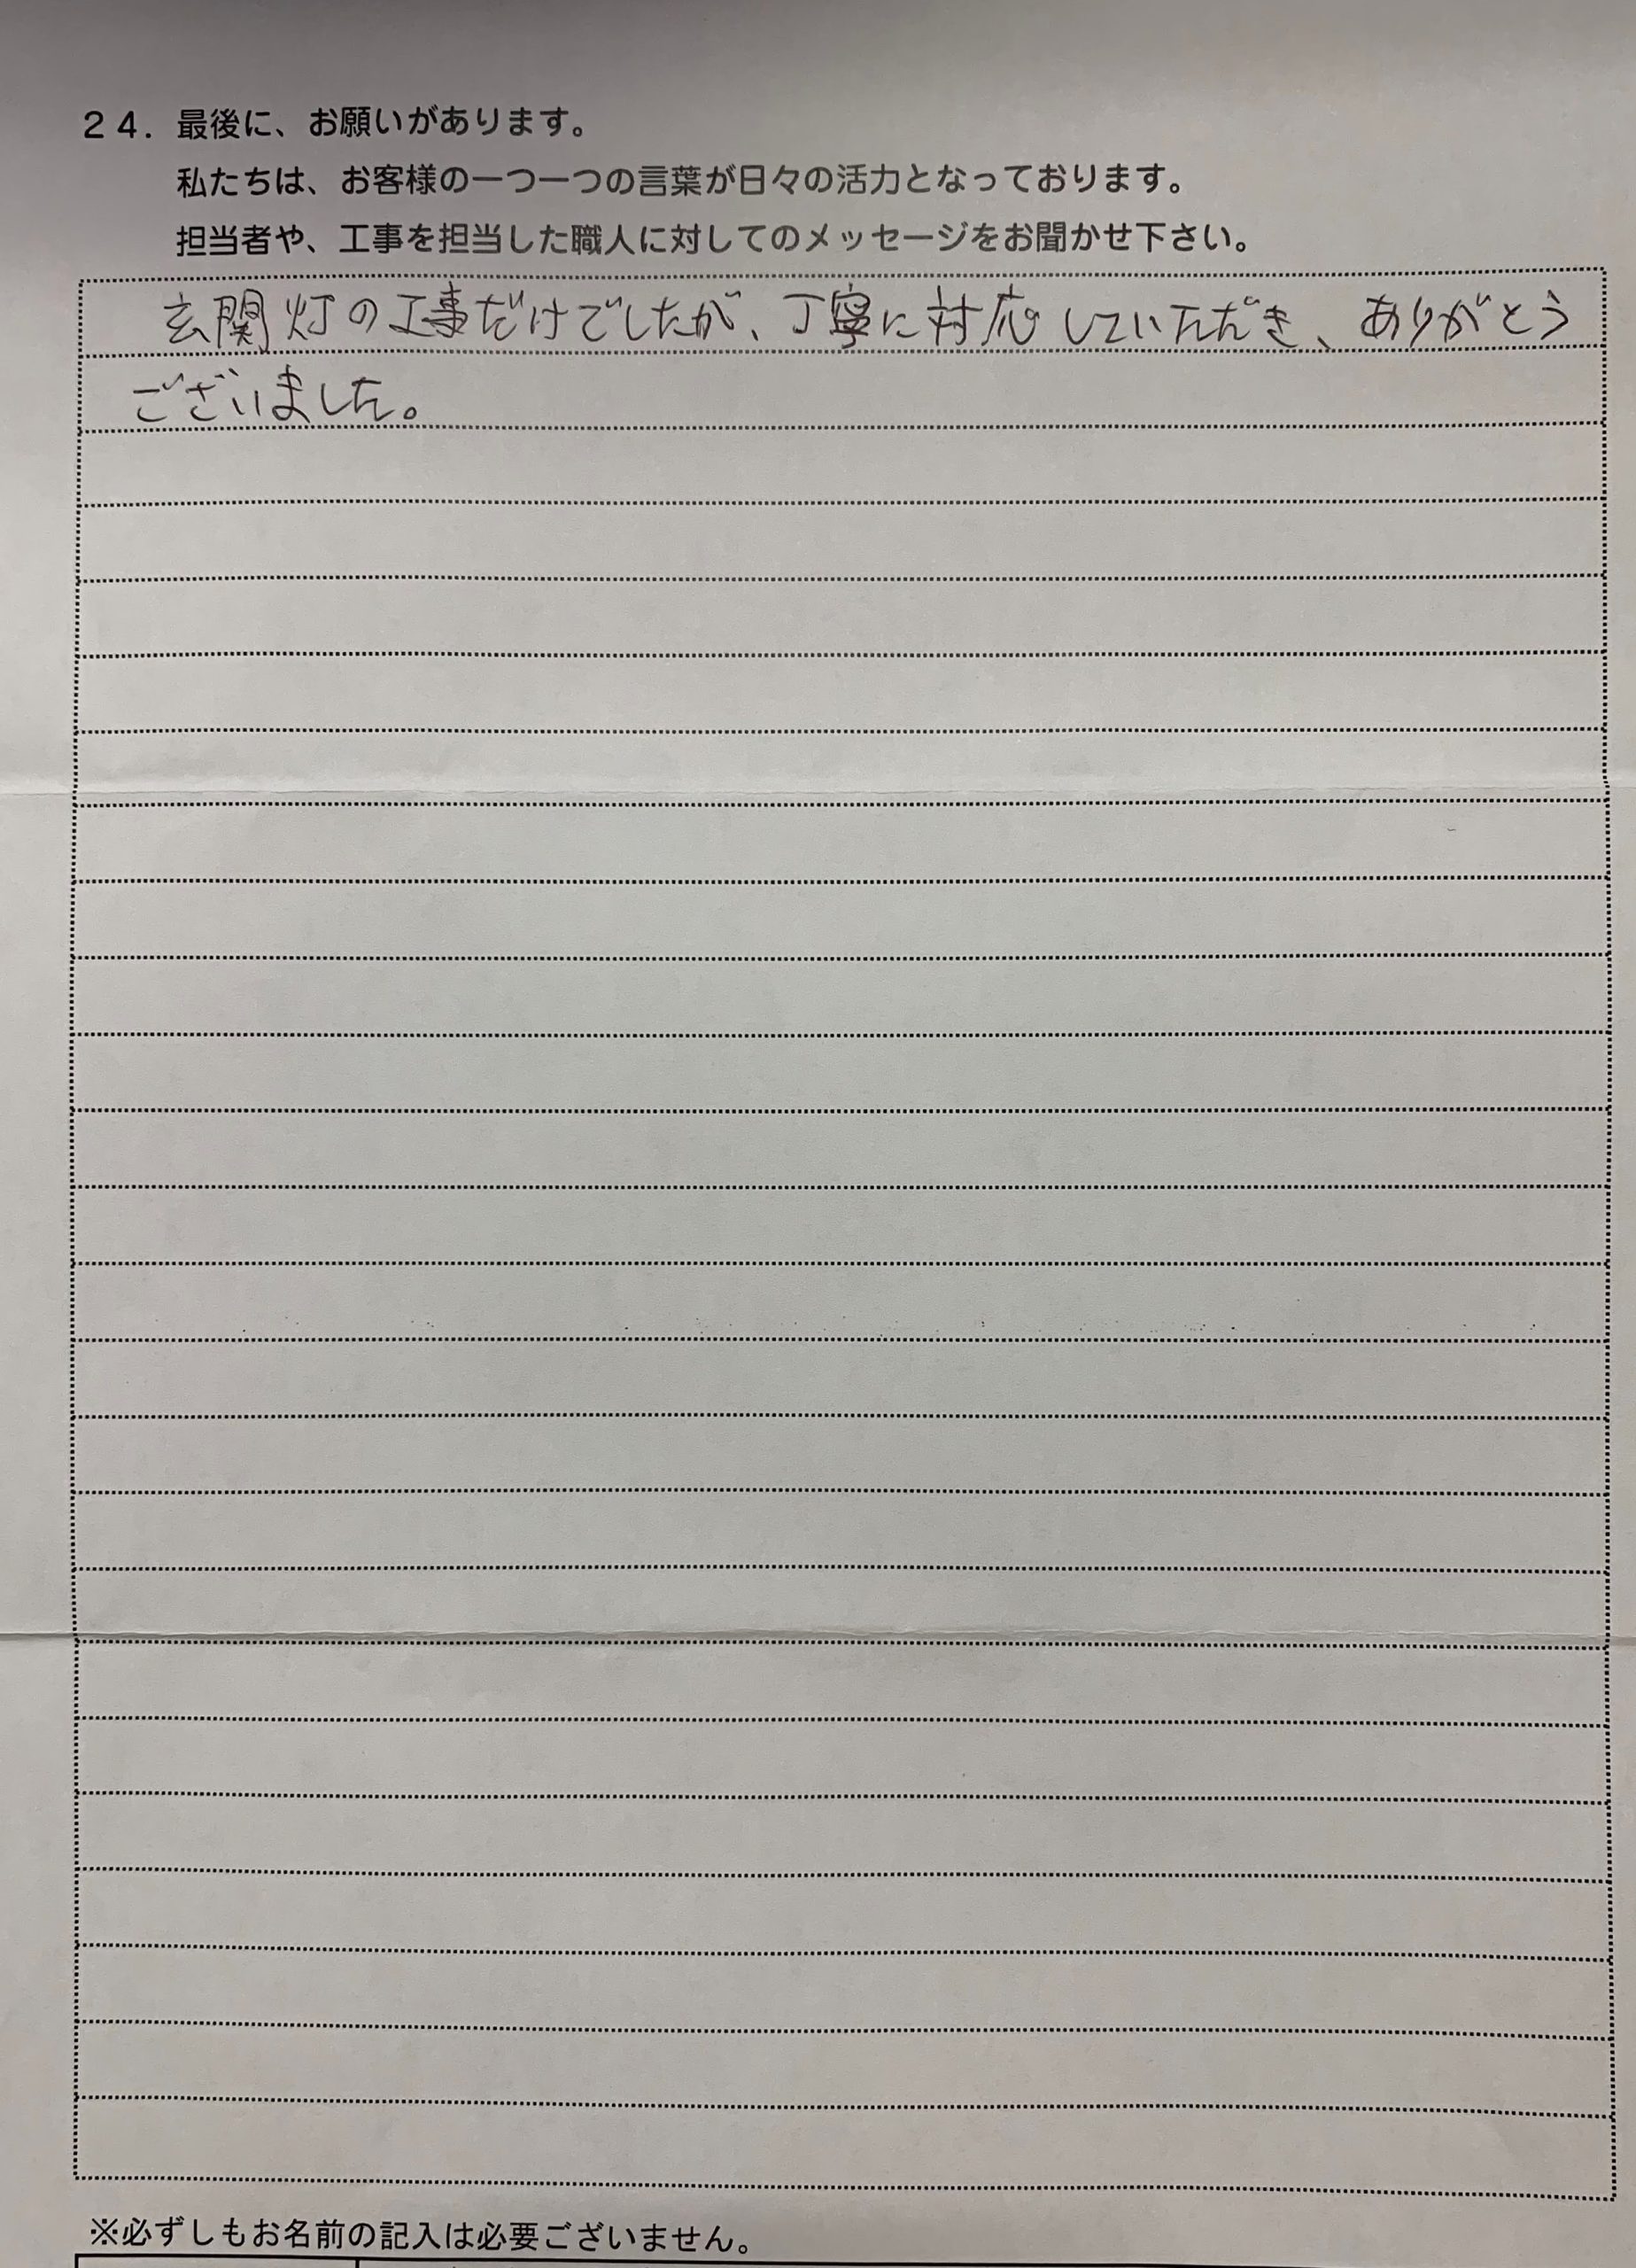 24. 最後に、お願いがあります。
私たちは、お客様の一つ一つの言葉が日々の活力となっております。
担当者や、工事を担当した職人に対してのメッセージをお聞かせ下さい。
玄関灯の工事だけでしたが、丁寧に対応していただき、ありがとう
ございました。
※必ずしもお名前の記入は必要ございません。